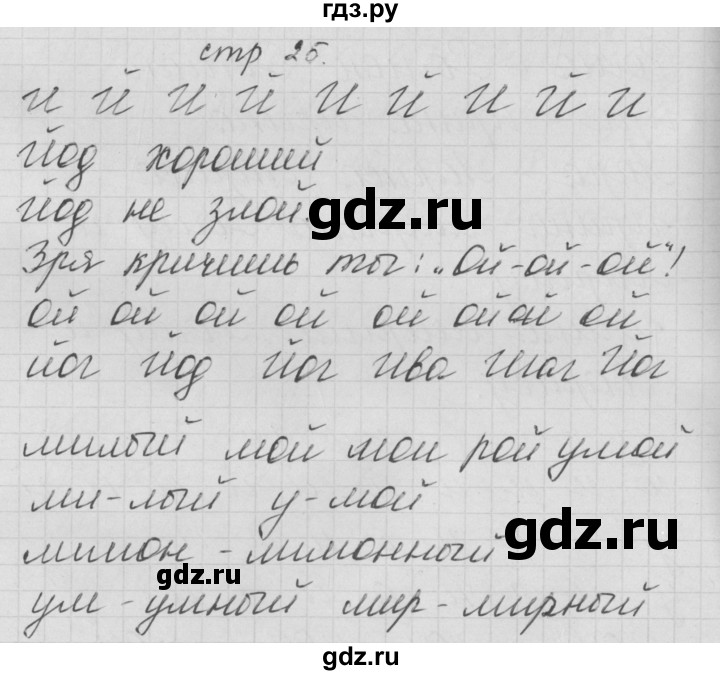 гдз.ру
стр 25.
и й и й и й и й и
Йод хороший
Йод не злой.
gdz.ru
Зря кричишь ты: „Ой-ой-ой"!
ой ой ой ой ой ой ой ой
йог Йод Йог Ива Шаг Йог
милый мой мои рой умой
ми-лый у-мой
gdz.ru
лимон - лимонный
gdz.ru
ум - умный мир - мирный
gdz.ru